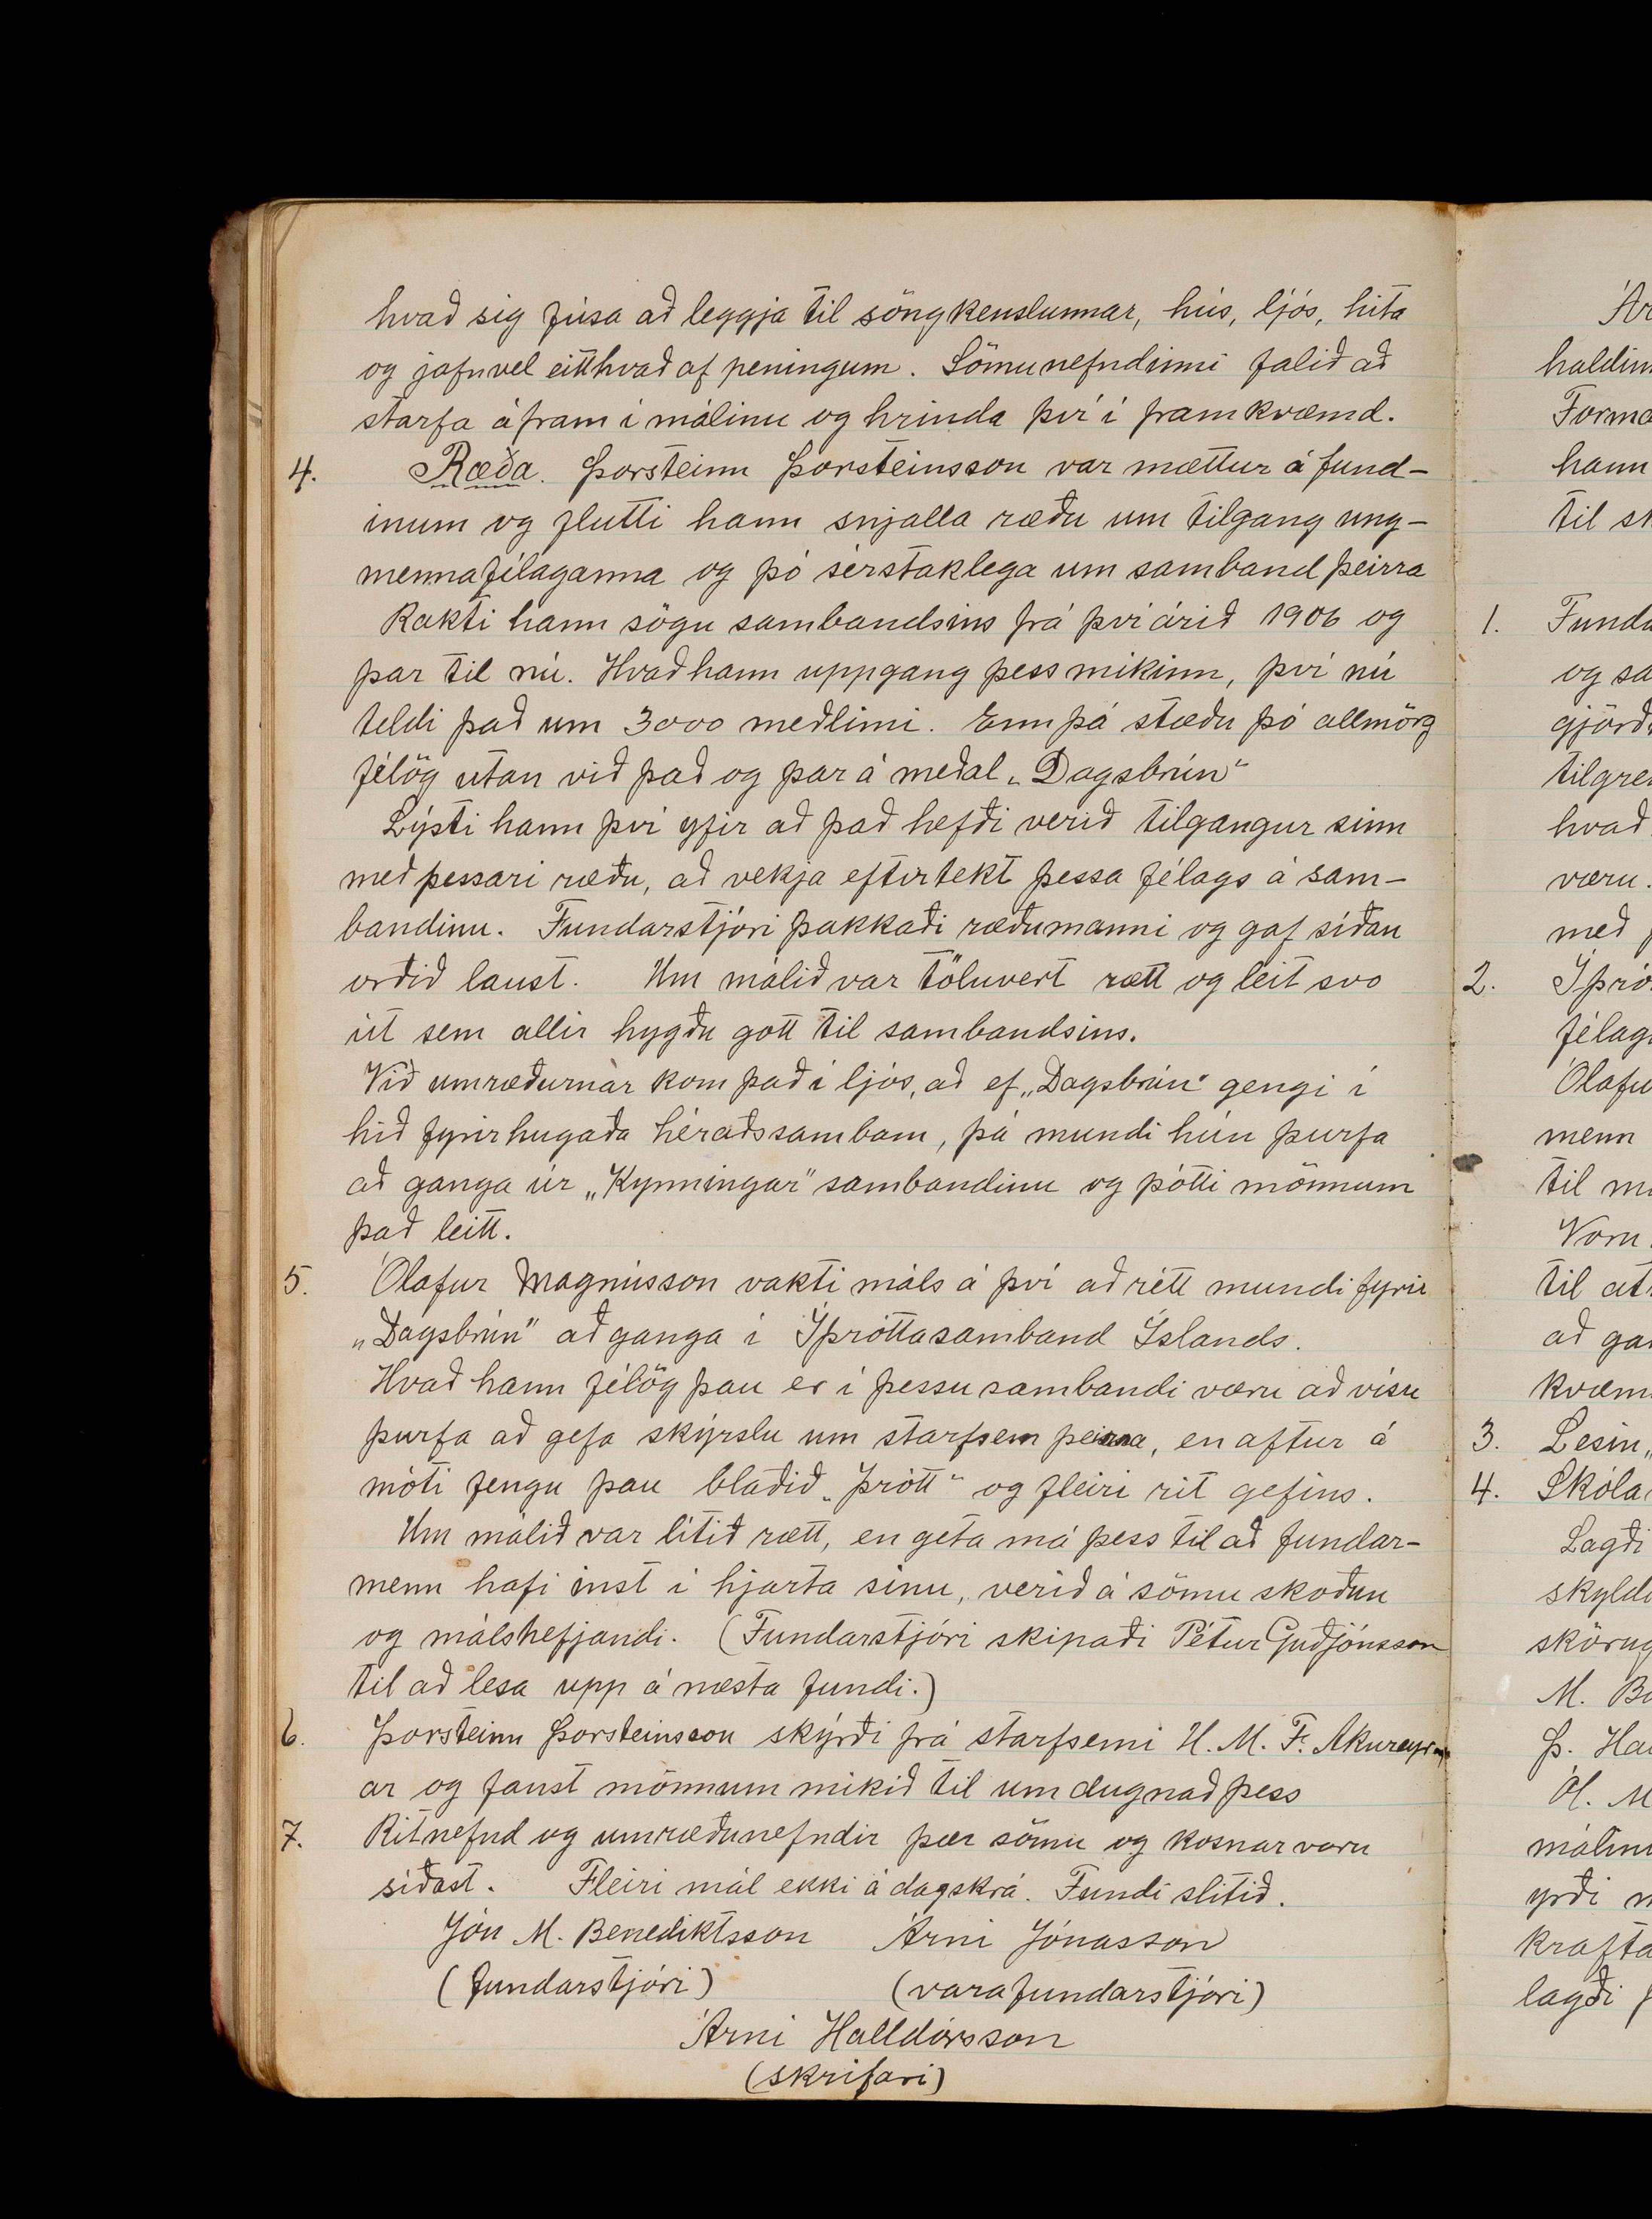 hvað sig fúsa að leggja til söngkenslunnar, hús, ljós, hita
og jafnvel eitthvað af peningum. Sömu nefndinni falið að
starfa áfram í málinu og hrinda því í framkvæmd.
4. Ræða. Þorsteinn Þorsteinsson var mættur á fund-
inum og flutti hann snjalla ræðu um tilgang ung-
mennafélaganna og þó sérstaklega um samband þeirra
Rakti hann sögu sambandsins frá því árið 1906 og
þar til nú. Hvað hann uppgang þess mikinn, því nú
teldi það um 3000 meðlimi. Enn þá stæðu þó allmörg
félög utan við það og þar á meðal „Dagsbrún“
Lýsti hann því yfir að það hefði verið tilgangur sinn
með þessari ræðu, að vekja eftirtekt þessa félags á sam-
bandinu. Fundarstjóri þakkaði ræðumanni og gaf síðan
orðið laust. Um málið var töluvert rætt og leit svo
út sem allir hygðu gott til sambandsins.
Við umræðurnar kom það í ljós, að ef „Dagsbrún“ gengi í
hið fyrirhugaða héraðssambam, þá mundi hún þurfa
að ganga úr „Kynningar“ sambandinu og þótti mönnum
það leitt.
5. Ólafur Magnússon vakti máls á því að rétt mundi fyrir
„Dagsbrún“ að ganga í Íþróttasamband Íslands.
Hvað hann félög þau er í þessu sambandi væru að vísu
þurfa að gefa skýrslu um starfsem þeirra, en aftur á
móti fengu þau blaðið „Þrótt“ og fleiri rit gefins.
Um málið var lítið rætt, en geta má þess til að fundar-
menn hafi inst í hjarta sínu, verið á sömu skoðun
og málshefjandi. (Fundarstjóri skipaði Pétur Guðjónsson
til að lesa upp á næsta fundi.)
6. Þorsteinn Þorsteinsson skýrði frá starfsemi U. M. F. Akureyr-
ar og fanst mönnum mikið til um dugnað þess
7. Ritnefnd og umræðunefndir þær sömu og kosnar voru
síðast. Fleiri mál ekki á dagskrá. Fundi slitið.
Jón M. Benediktsson Árni Jónasson
(fundarstjóri) (varafundarstjóri)
Árni Halldórsson
(skrifari)
haldin
Forma
hann
til sk
1. Fundu
og sa
gjörð
tilgre
hvað
væru.
með
2. Íþró
félag
Ólafu
menn
til m
Voru
til at
að ga
kvæm
3. Lesin
4. Skóla
Lagði
skyld
skörug
M. B
Þ. Ha
Ól. M
málinu
yrði
krafta
lagði